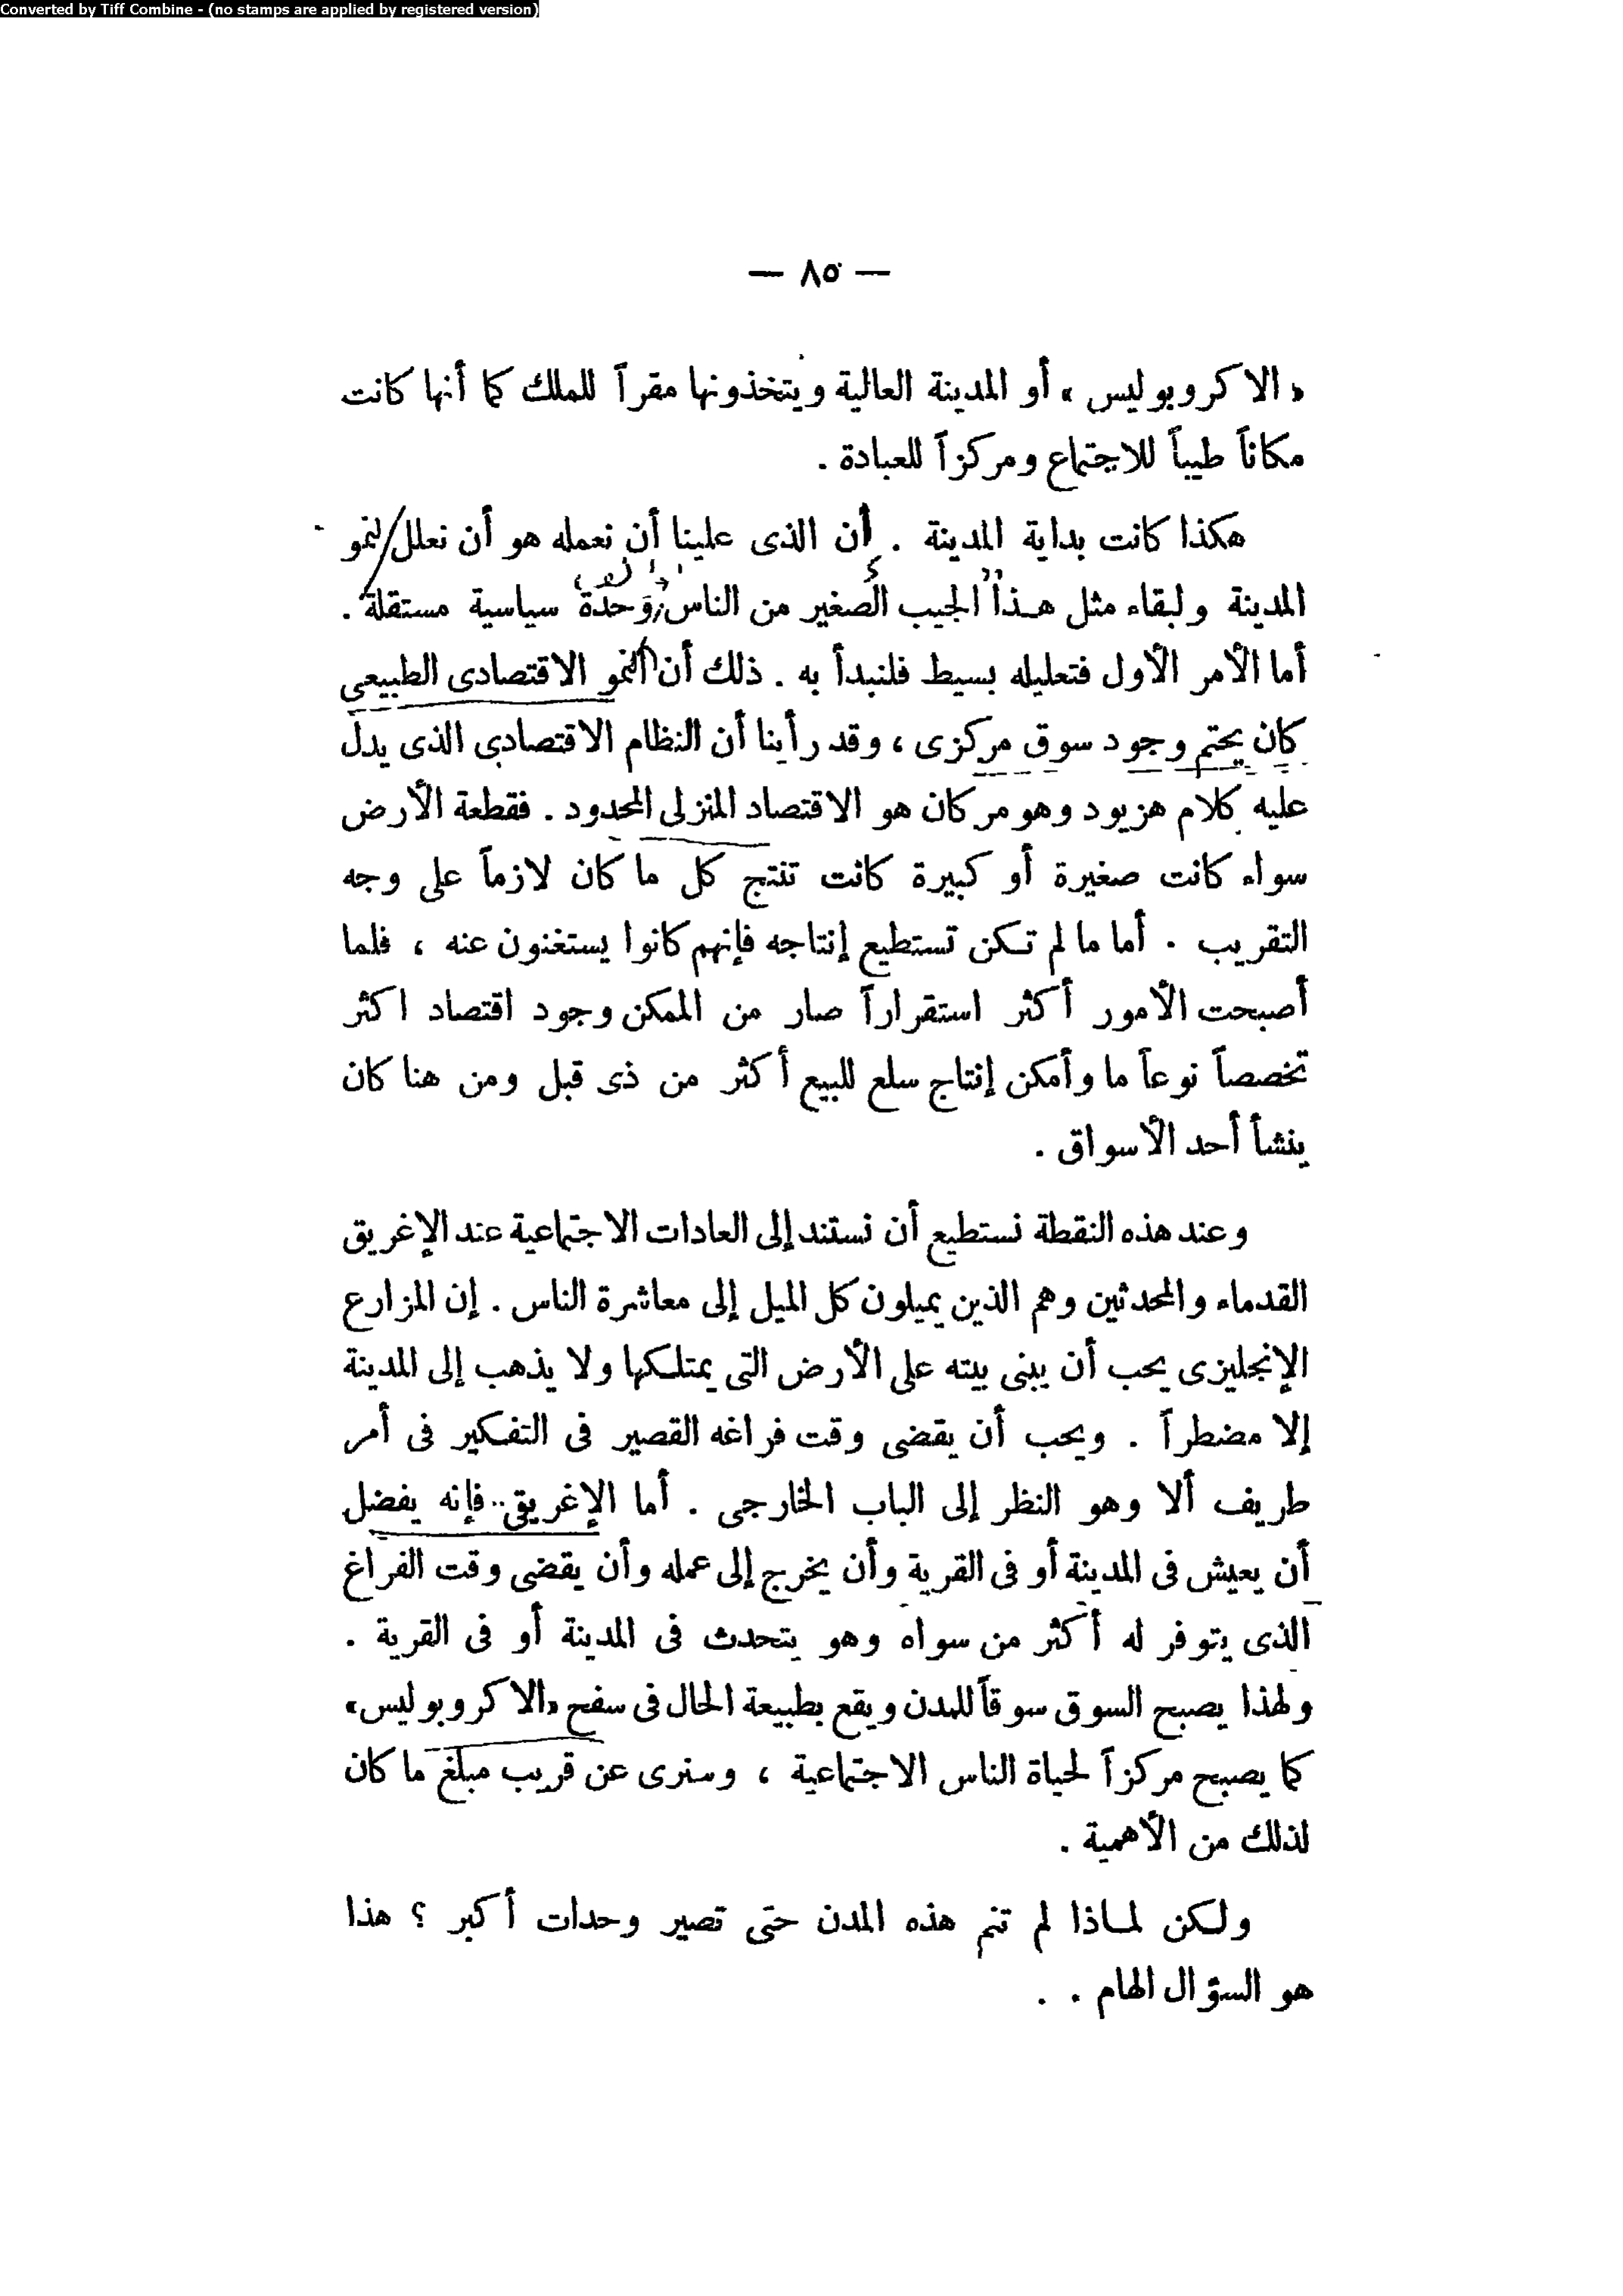 Converted by Tiff Combine - (no stamps are applied by registered version)
— ٨٥ —
« الاكروبوليس » أو المدينة العالية ويتخذونها مقراً للملك كما أنها كانت
مكاناً طيباً للاجتماع ومركزاً للعبادة .
هكذا كانت بداية المدينة . أن الذى علينا أن نعمله هو أن نعلل لنمو
المدينة ولبقاء مثل هذا الجيب الصغير من الناس وحدة سياسية مستقلة .
أما الأمر الأول فتعليله بسيط فلنبدأ به . ذلك أن النمو الاقتصادى الطبيعى
كان يحتم وجود سوق مركزى ، وقد رأينا أن النظام الاقتصادى الذى يدل
عليه كلام هزيود وهومر كان هو الاقتصاد المنزلى المحدود . فقطعة الأرض
سواء كانت صغيرة أو كبيرة كانت تنتج كل ما كان لازماً على وجه
التقريب . أما ما لم تكن تستطيع إنتاجه فإنهم كانوا يستغنون عنه ، فلما
أصبحت الأمور أكثر استقراراً صار من الممكن وجود اقتصاد اكثر
تخصصاً نوعاً ما وأمكن إنتاج سلع للبيع أكثر من ذى قبل ومن هنا كان
ينشأ أحد الأسواق .
وعند هذه النقطة نستطيع أن نستند إلى العادات الاجتماعية عند الإغريق
القدماء والمحدثين وهم الذين يميلون كل الميل إلى معاشرة الناس . إن المزارع
الإنجليزى يحب أن يبنى بيته على الأرض التى يمتلكها ولا يذهب إلى المدينة
إلا مضطراً . ويحب أن يقضى وقت فراغه القصير فى التفكير فى أمر
طريف ألا وهو النظر إلى الباب الخارجى . أما الإغريقى فإنه يفضل
أن يعيش فى المدينة أو فى القرية وأن يخرج إلى عمله وأن يقضى وقت الفراغ
الذى يتوفر له أكثر من سواه وهو يتحدث فى المدينة أو فى القرية .
ولهذا يصبح السوق سوقاً للمدن ويقع بطبيعة الحال فى سفح «الاكروبوليس»
كما يصبح مركزاً لحياة الناس الاجتماعية ، وسنرى عن قريب مبلغ ما كان
لذلك من الأهمية .
ولكن لماذا لم تنم هذه المدن حتى تصير وحدات أكبر ؟ هذا
هو السؤال الهام . .